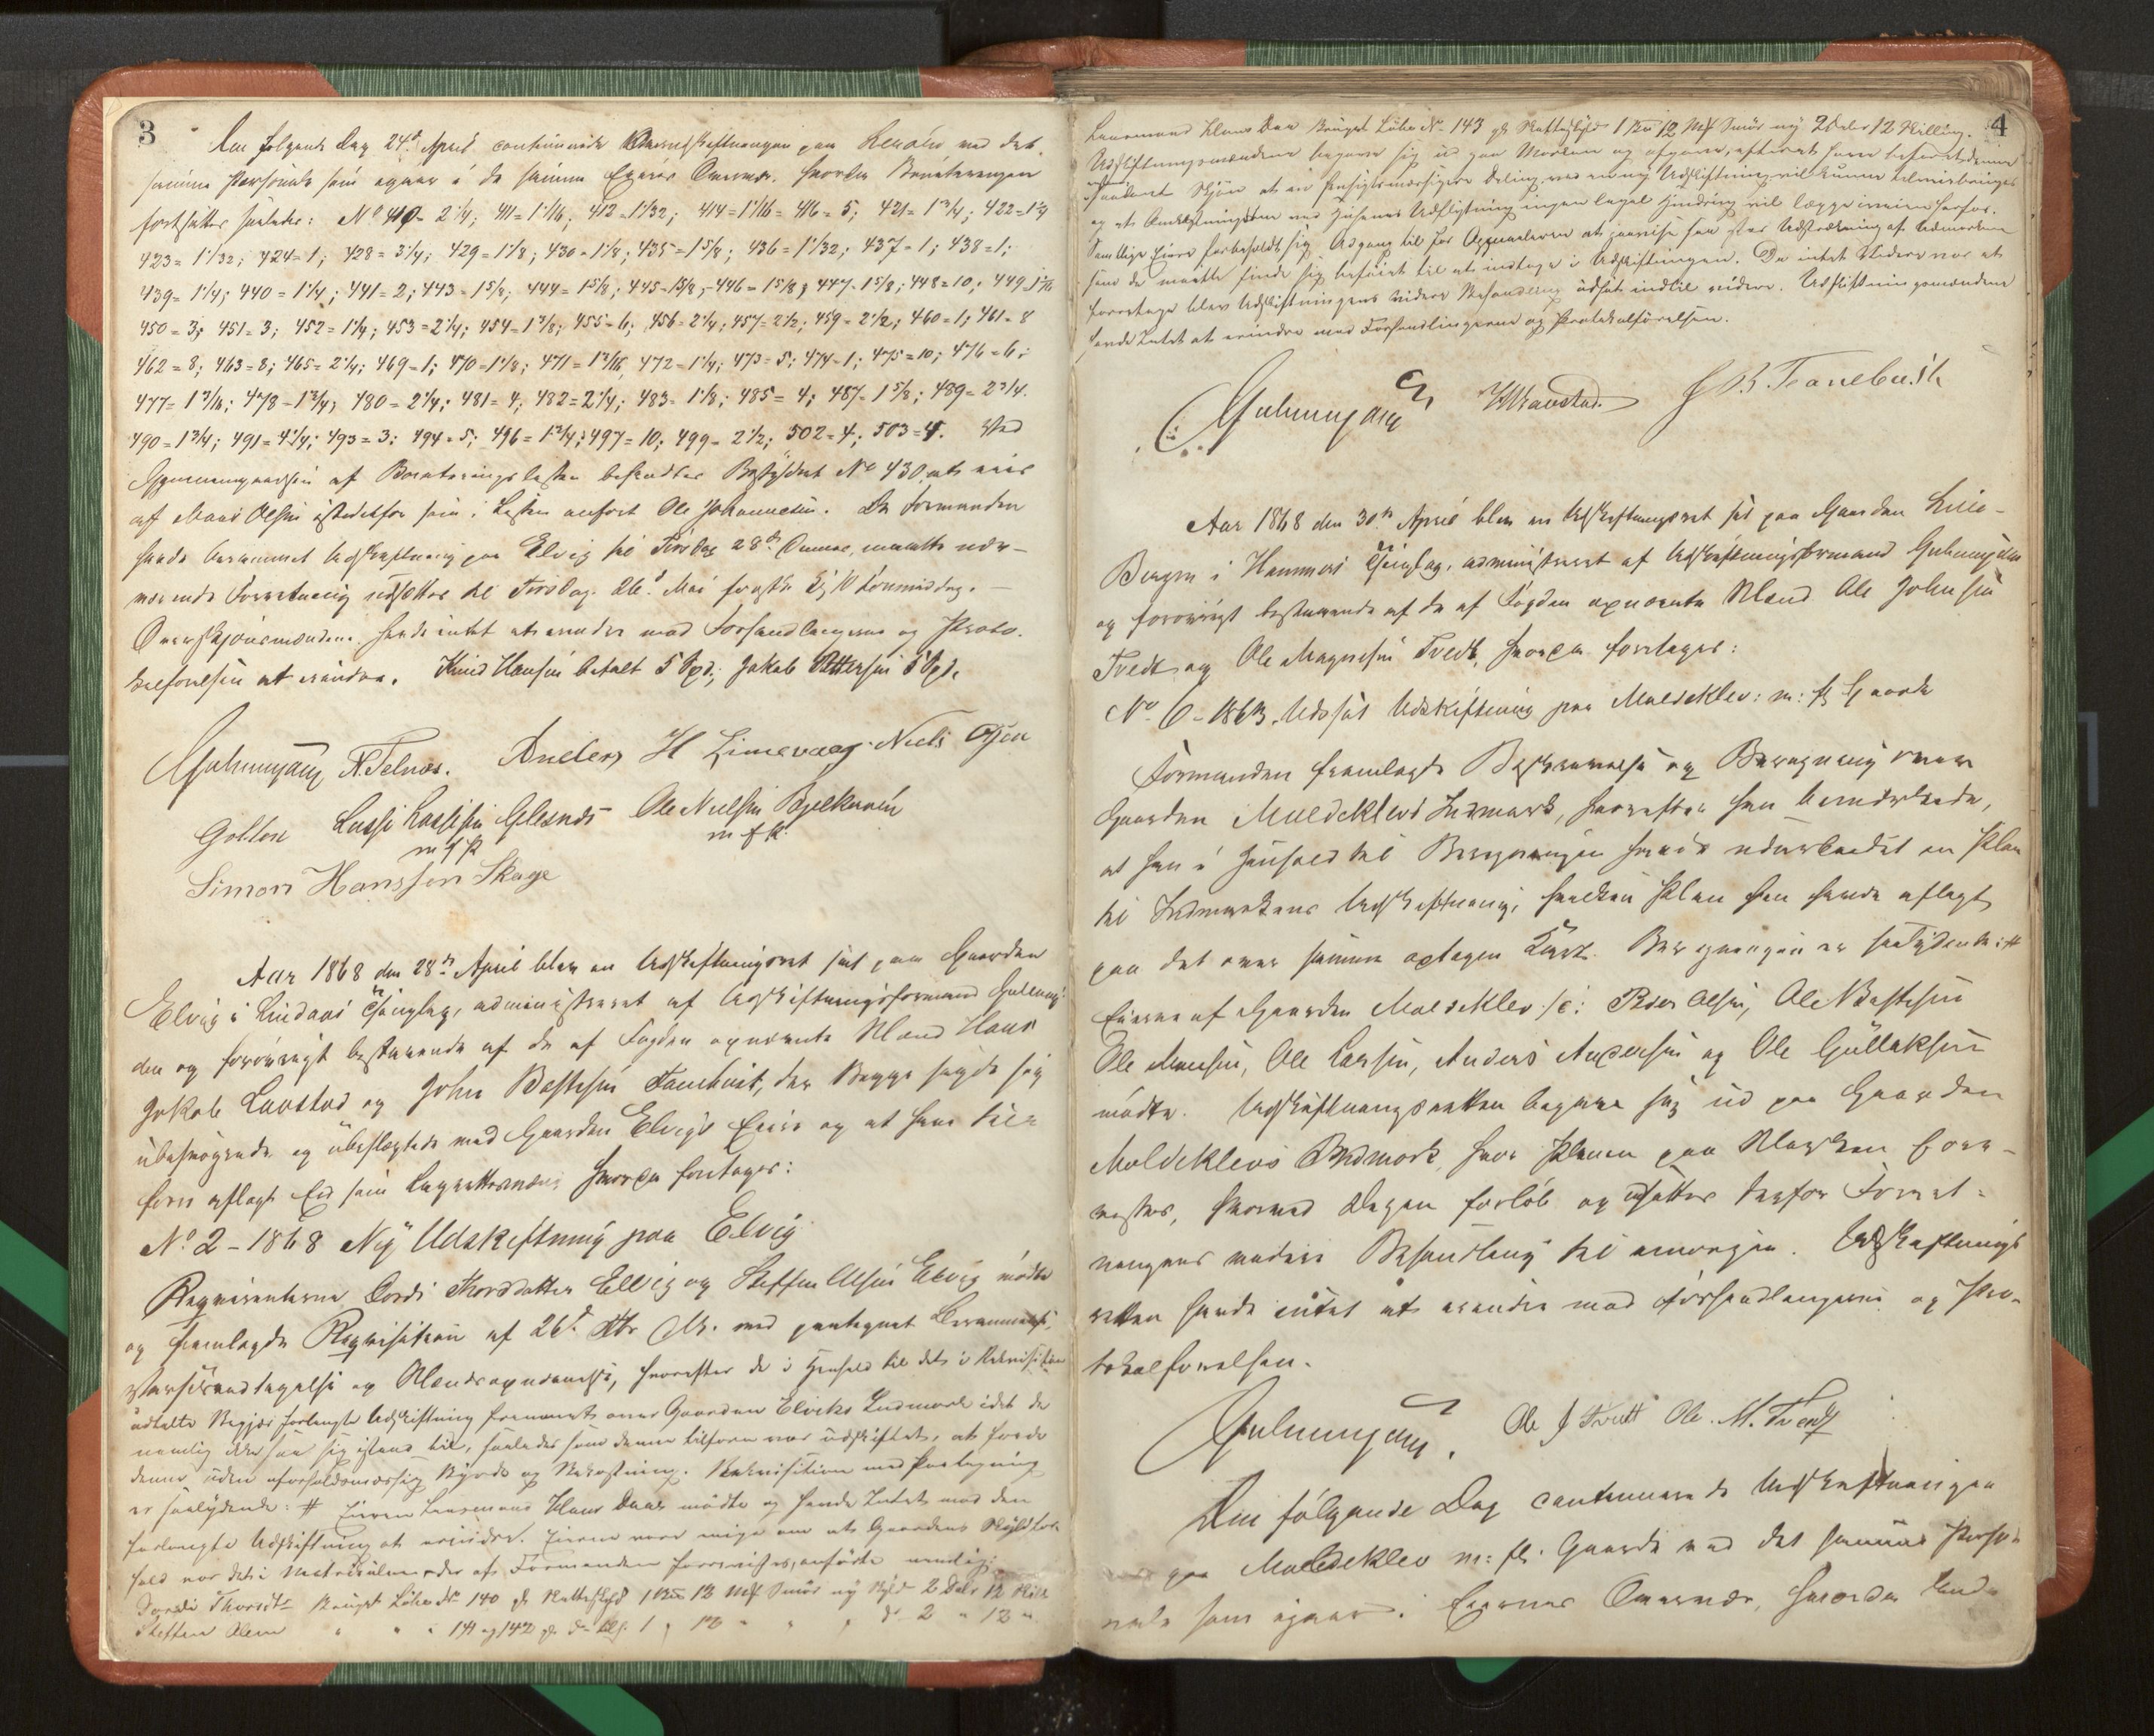 3
Den følgende Dag 24de April continuerede Overudskiftningen paa Herøen med det
samme Personale som igaar i de samme Eieres Overvær. Hvorda Boniteringen
fortsattes saaledes: No 410 = 2 1/4; 411 = 1 1/16; 412 = 1 1/32; 414 = 1 1/16 = 416 = 5; 421 = 1 3/4; 422 = 1 3/4
423 = 1 1/32; 424 = 1; 428 = 3 1/4; 429 = 1 1/8; 430 = 1 1/8; 435 = 1 5/8; 436 = 1 1/32; 437 = 1; 438 = 1;
439 = 1 1/4; 440 = 1 1/4; 441 = 2; 443 = 1 5/8; 444 = 1 5/8; 445 = 1 5/8; 446 = 1 5/8; 447 = 1 5/8; 448 = 10; 449 = 1 1/16
450 = 3; 451 = 3; 452 = 1 1/4; 453 = 2 1/4; 454 = 1 3/8; 455 = 6; 456 = 2 1/4; 457 = 2 1/2; 459 = 2 1/2; 460 = 1; 461 = 8
462 = 8; 463 = 8; 465 = 2 1/4; 469 = 1; 470 = 1 1/8; 471 = 1 3/16; 472 = 1 1/4; 473 = 5; 474 = 1; 475 = 10; 476 = 6;
477 = 1 3/16; 478 = 1 3/4; 480 = 2 1/4; 481 = 4; 482 = 2 1/4; 483 = 1 1/8; 485 = 4; 487 = 1 5/8; 489 = 2 3/4.
490 = 1 3/4; 491 = 4 1/4; 493 = 3; 494 = 5; 496 = 1 3/4; 497 = 10; 499 = 2 1/2; 502 = 4; 503 = 4. Ved
Gjennemgaaelsen af Boniteringslisten befandtes No 430 at eies
af Mons Olsen istedetfor som i Listen anført Ole Johannesen. Da Formanden
havde berammet Udskiftning paa Elvig til Tirsdag 28de Dennes, maatte nær-
værende Forretning udsættes til Tirsdag 26de Mai førstk. Kl 10 Formiddag. —
Overskjønsmændene havde intet at erindre mod Forhandlingerne og Proto-
kolførelsen at erindre. Knud Hansen betalt 5 Spd; Jakob Pettersen 5 Spd.
Guldmyden R. Telnes. Anders H Limevaag Niels
Golten Lasse Lassesen Glesnæs Ole Nielsen Bjelkerøen
m f P m f P
Simon Hanssen Skage
Aar 1868 den 28de April blev en Udskiftningsret sat paa Gaarden
Elvig i Lindaas Thinglag, administreret af Udskiftningsformand Guldmy-
den og forøvrigt bestaaende af de af Fogden opnævnte Mænd Hans
Jakob Lavstad og John Bastesen Fanebust, der Begge sagde sig
ubesvogrede og ubeslægtede med Gaarden Elvigs Eiere og at have til-
forn aflagt Ed som Lagrettesmænd hvorpaa foretages:
No 2 - 1868 Ny Udskiftning paa Elvig
Reqvirenterne Dordi Thorsdatter Elvig og Steffen Olsen Elvig mødte
og fremlagde Reqvisition af 26de med paategnet Berammelse,
Varselsvedtagelse og Mændsopnævnelse, hvorefter de i Henhold til det i Rekvisition
udtalte Begjær forlangte Udskiftning fremmet over Gaarden Elviks Indmark idet de
nemlig ikke saa sig istand til, saaledes som denne tilforn var udskiftet, at
denne uden uforholdsmæssig Byrde og Bekostning. Rekvisition med Paategning
er saalydende: # Eieren Lensmand Klaus Daae mødte og havde Intet mod den
forlangte Udskiftning at erindre. Eierne vare enige om at Gaardens Skyldfor-
hold var det i Matrikulen eller af Formanden foreviste, anførte nemlig:
Dordi Thorsdtr Bruget Løbe No 140 gl Matteskyld 1 12 Smør ny Skyld 2 Daler 12 Skill
Steffen Olsen " " " 141 og 142 gl do 1 " 12 " " " do 2 " 12 "
4
Lensmand Klaus Daa Bruget Løbe No 143 gl Matteskyld 1 12 Smør ny 2 Daler 12 Skilling.
Udskiftningsmændene begave sig ud paa Marken og afgave, efterat have befaret denne
saadant Skjøn at en hensigtsmæssigere Deling ved en ny Udskiftning vil kunne tilveiebringes
og at Omkostningerne ved Husenes Udflytning ingen lagal Hindring vil lægge iveien herfor.
Samtlige Eiere forbeholdt sig Adgang til for at paavise saa stor Udstrækning af Udmarken
som de maatte finde sig beføiet til at indtage i Udskiftningen. Da intet Videre var at
foretage blev Udskiftningens videre Behandling udsat indtil videre. Udskiftningsmændene
havde Intet at erindre mod Forhandlingerne og Protokolførelsen.
Guldmyden HLavstad. J B. Fanebust
Aar 1868 den 30te April blev en Udskiftningsret sat paa Gaarden Lille-
Bergen i Hammers Thinglag, administreret af Udskiftningsformand Guldmyden
og forøvrigt bestaaende af de af Fogden opnævnte Mænd Ole Johnsen
Tvedt og Ole Magnesen Tvedt, hvorpaa foretages:
No 6 - 1863. Udsat Udskiftning paa Moldeklev: m: fl Gaarde
Formanden fremlagde Beskrivelse og Beregning over
Gaarden Moldeklevs Indmark, hvorefter han bemærkede,
at han i Henhold til Beregningen havde udarbeidet en Plan
til Indmarkens Udskiftning, hvilken Plan han havde aflagt
paa det over samme optagen Kart. Beregningen er saalydende: #
Eierne af Gaarden Moldeklev: Peder Olsen, Ole Bastesen
Ole Monsen, Ole Larsen, Anders Andersen og Ole Gullaksen
mødte. Udskiftningsretten begave sig ud paa Gaarden
Moldeklevs Indmark, hvor Planen paa Marken fore-
vistes, hvormed Dagen forløb og udsattes derfor Forret-
ningens videre Behandling til imorgen. Udskiftnings
retten havde intet at erindre mod Forhandlingerne og Pro-
tokolførelsen.
Guldmyden. Ole J Tvett Ole. M. Tvedt
Den følgende Dag continuerede Udskiftningen
paa Moldeklev m: fl. Gaarde med det samme Perso-
nale som igaar i Eiernes Overvær, hvorda